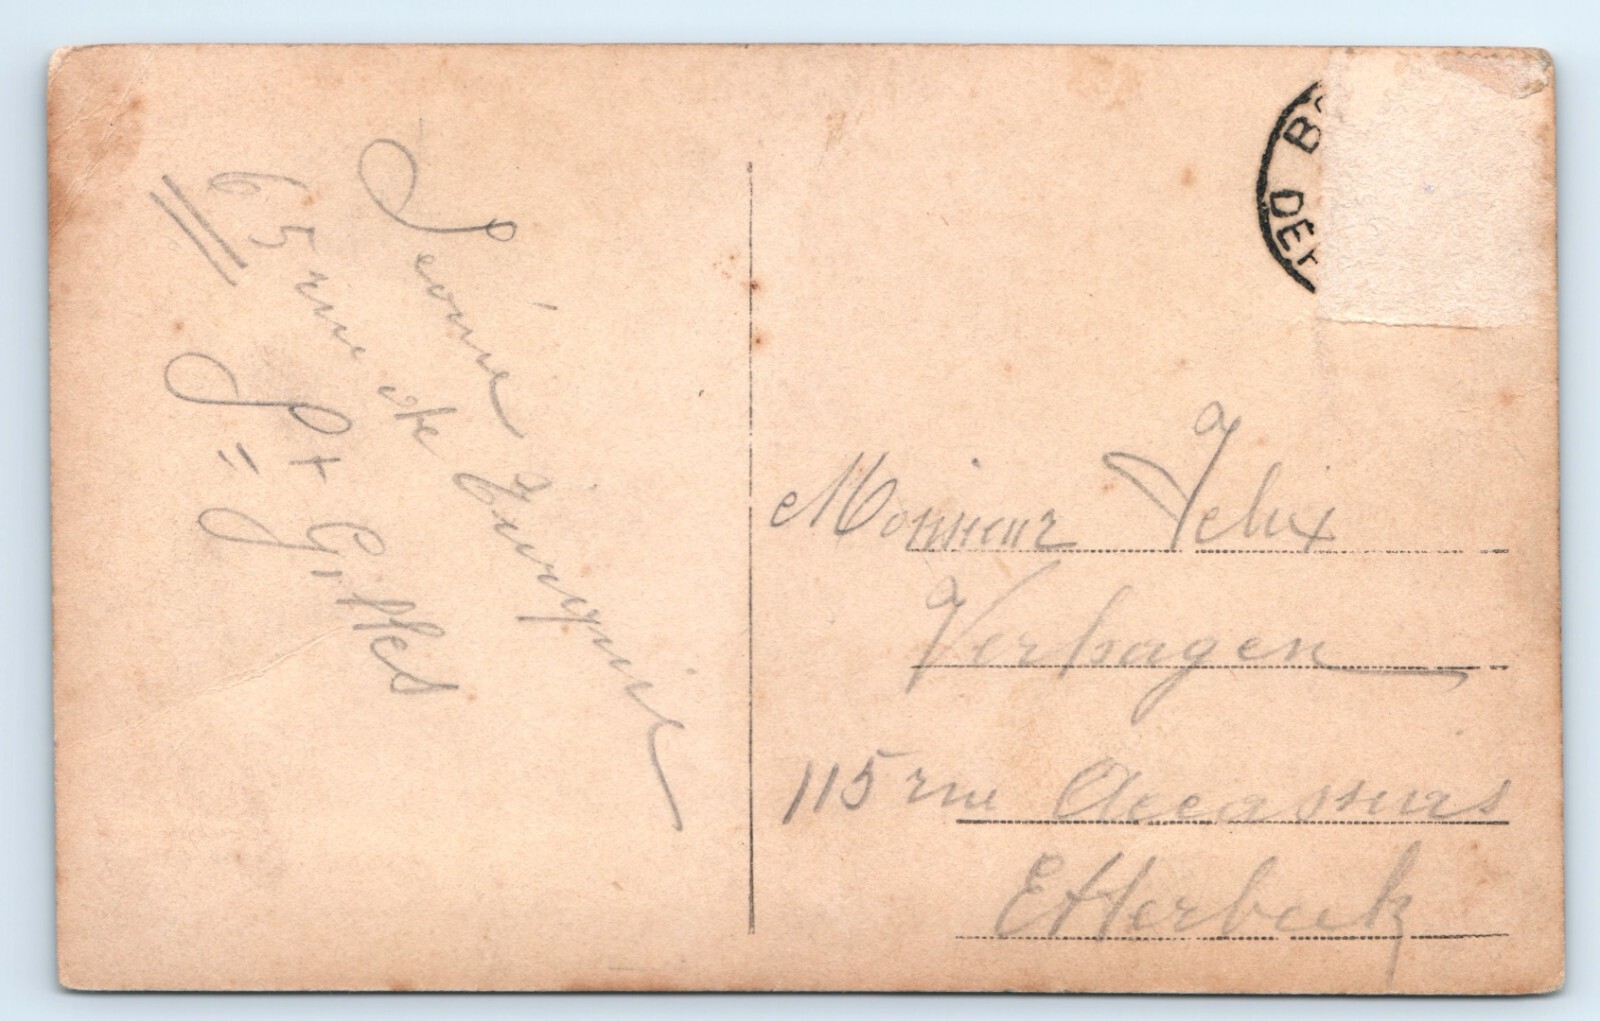 Léonie
65 rue de Turquie
St = Gilles
BR
DE
Monsieur Felix
Verhagen
115 rue
Etterbeek